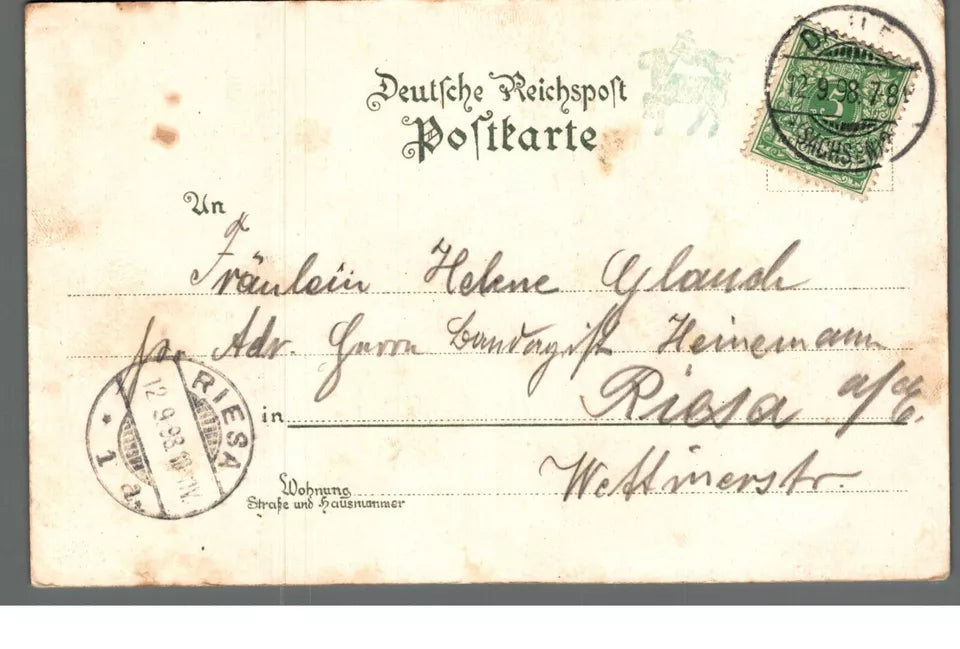 Deutsche Reichspost
Postkarte
12.9.98. 7-8
(SACHSEN)
5
An
Fräulein Helene Glauch
pr. Adr. Herrn Bandagist Heinemann
in Riesa a/E.
Wettinerstr.
Wohnung
Straße und Hausnummer
RIESA
12.9.98.
* 1 a.